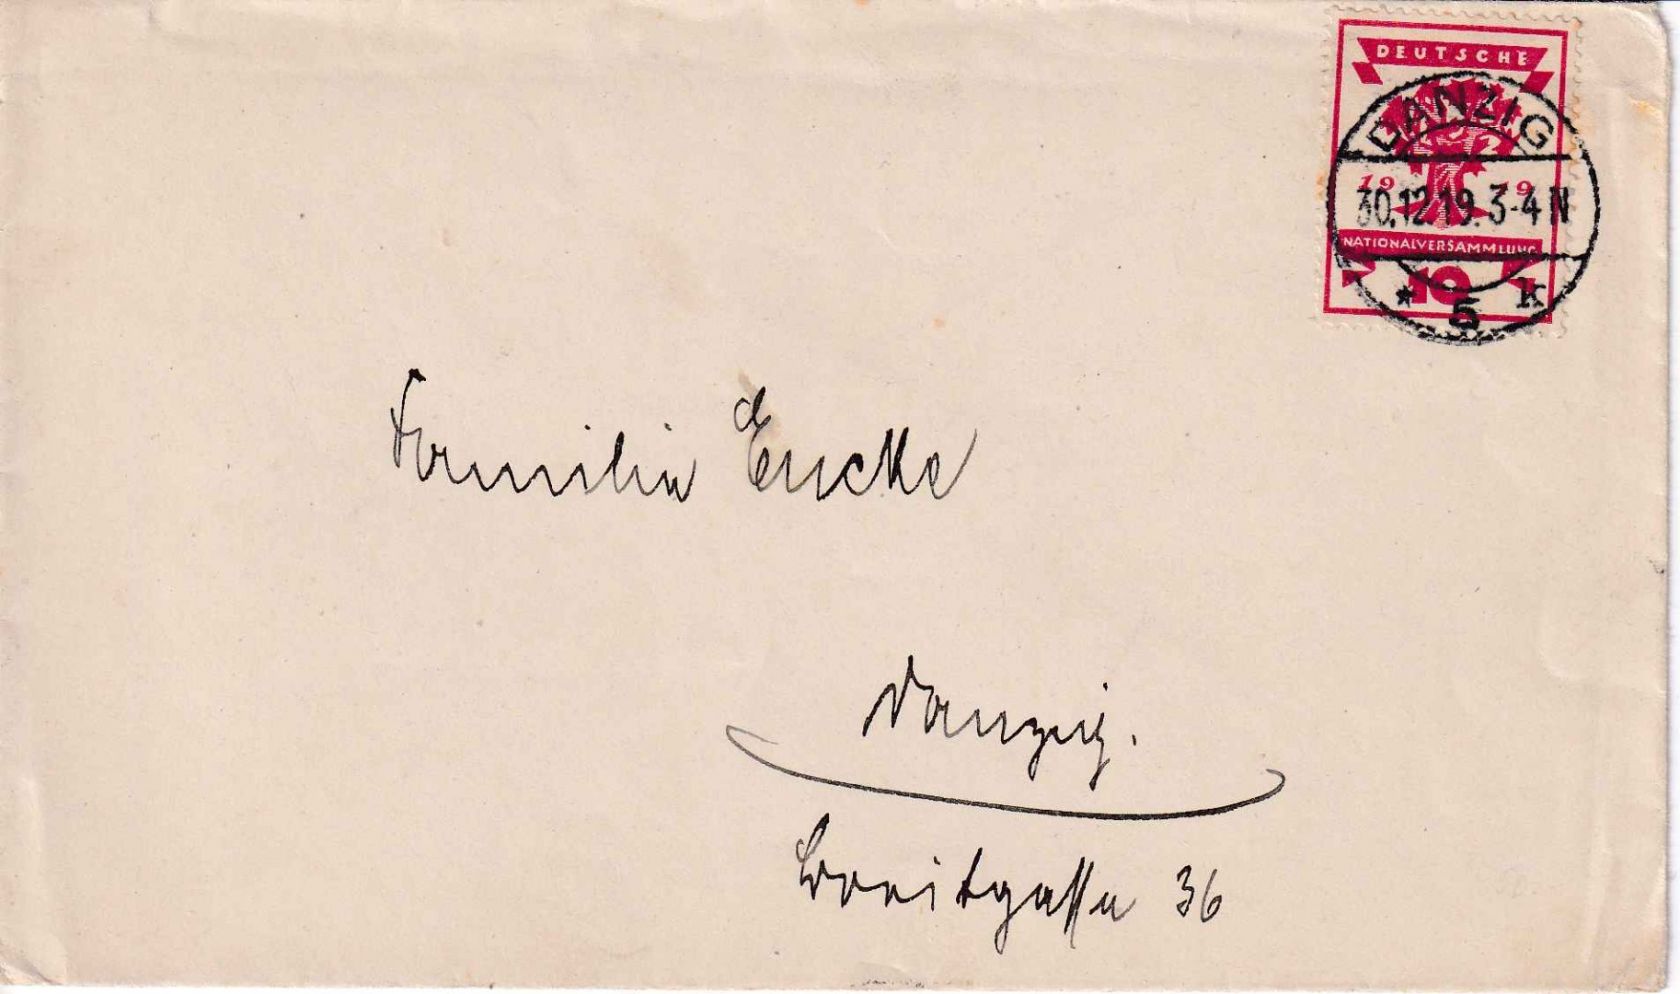 DEUTSCHE
DANZIG
1919
30.12.19. 3-4 N
NATIONALVERSAMMLUNG
10
* 5 k
Familie Encke
Danzig.
Breitgasse 36